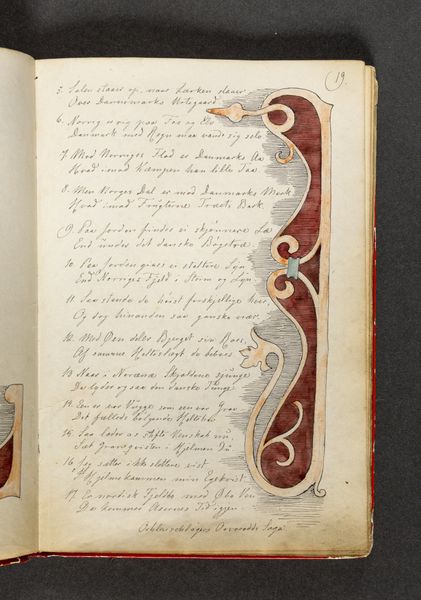 19.
5. Solen staaer op, naar Lærken slaaer
Over Dannemarks Urtegaard
6. Norrig er rig paa Foss og Elv
Danmark med Regn maa vande sig selv
7. Mod Norriges Flod er Danmarks Aa
Hvad imod Kæmpen hans lille Taa.
8. Men Norges Dal er mod Danmarks Mark
Hvad imod Frugterne Træets Bark.
9. Paa Jorden findes ei skjønnere Læ
End under det danske Bøgetræ.
10. Paa Jorden gives ei stoltere Syn
End Norriges Fjeld i Storm og Lyn.
11. Saa stande de høist forskjellige her,
Og dog hinanden saa ganske nær.
12. Med Øen deler Bjerget sin Roes,
Af samme Helteslægt de beboes
13. Naar i Norden Skjaldene sjunge
Da lyder og saa den danske Tunge
14. Een er vor Vugge som een vor Grav
Det fælleds bølgende Heltehav
15. Saa lader os skifte Venskab nu,
Sæt Granqvisten i Hjelmen Du
16. Jeg sætter ikke stoltere vist
Hjelmekammen min Egeqvist
17. nordisk Fjeldbo med Øbo
Da kommer Asernes Tid igjen.
Oehlenschlægers Saga